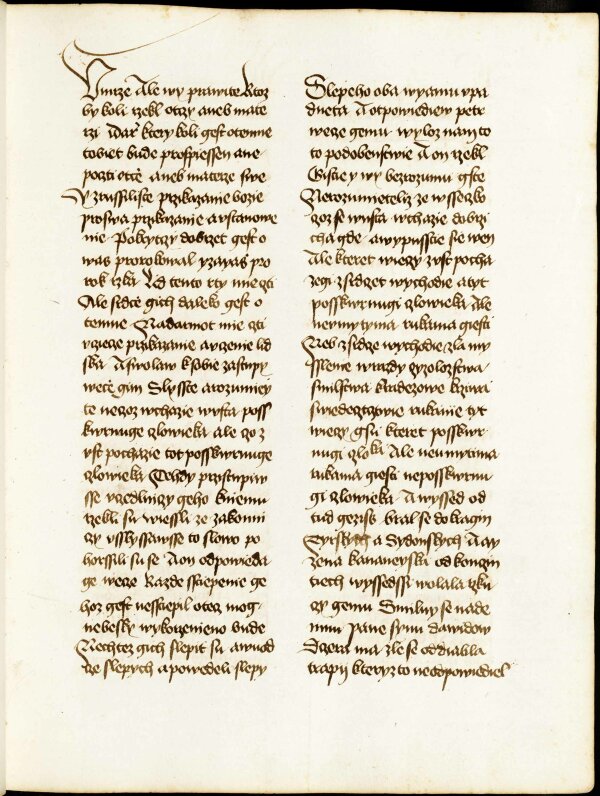 Vmze Ale wy prawite Ktoz
by koli rzekl otczy aneb mate
rzi Dar ktery koli gest otemne
tobiet bude prospiessen ane
pocti otce aneb materze swe
Y zrussiliste przikazanie bozie
prosiwa przikazanie a vstanowe
nie Pokrytczy dobrzet gest o
was prorokowal yzayas pro
rok rzka Lid tento rty mie czti
Ale srdce gich daleko gest o
temne Nadarmot mie czti
vcziece przikazanie a vczenie lid
ska A swolaw k sobie zastupy
wece gim Slysste a rozumiey
te necoz wchazie w vsta poss
kwrnuge czlowieka ale czo z
vst pochazie tot posskwrnuge
czlowieka Tehdy przistupiw
sse vczedlniczy geho k niemu
rzekli su wiessli ze zakonni
czy vslyssawsse to slowo po
horssili su se A on odpowieda
ge wece Kazde sstiepenie ge
hoz gest nesstiepil otecz mog
nebesky wykorzenieno bude
Nechtez gich slepit su a wuod
cze slepych a powedeli slepy
Slepeho oba w yamu vpa
dneta A otpowiediew petr
wece gemu wyloz nam to
to podobenstwie A on rzekl
Gisstie y wy bez rozumu gste
Nerozumieteliz ze wsseczko
czoz se w vsta wchazie do brzi
cha gde a wypusstie sie wen
Ale kteret wieczy z vst pocha
zegi z srdczet wychodie a tyt
posskwrnugi czlowieka Ale
neumytyma rukama giesti
Neb z srdcze wychodie zla my
sslenie wrazdy czyzolozstwa
smilstwa kradezowe krziwa
swiedecztwie rukanie tyt
wieczy gsu kteret posskwr
nugi czloka Ale neumytyma
rukama giesti neposskwrnu
gi czlowieka A wyssed od
tud gezis bral se do kragin
Tyrskych a Sydonskych A ay
zena kananeyska od konczin
tiech wyssedssi wolala rzku
czy gemu Smiluy se nade
mnu pane synu dawidow
Dczera ma zle se od diabla
trapij kteryz to neodpowiediel